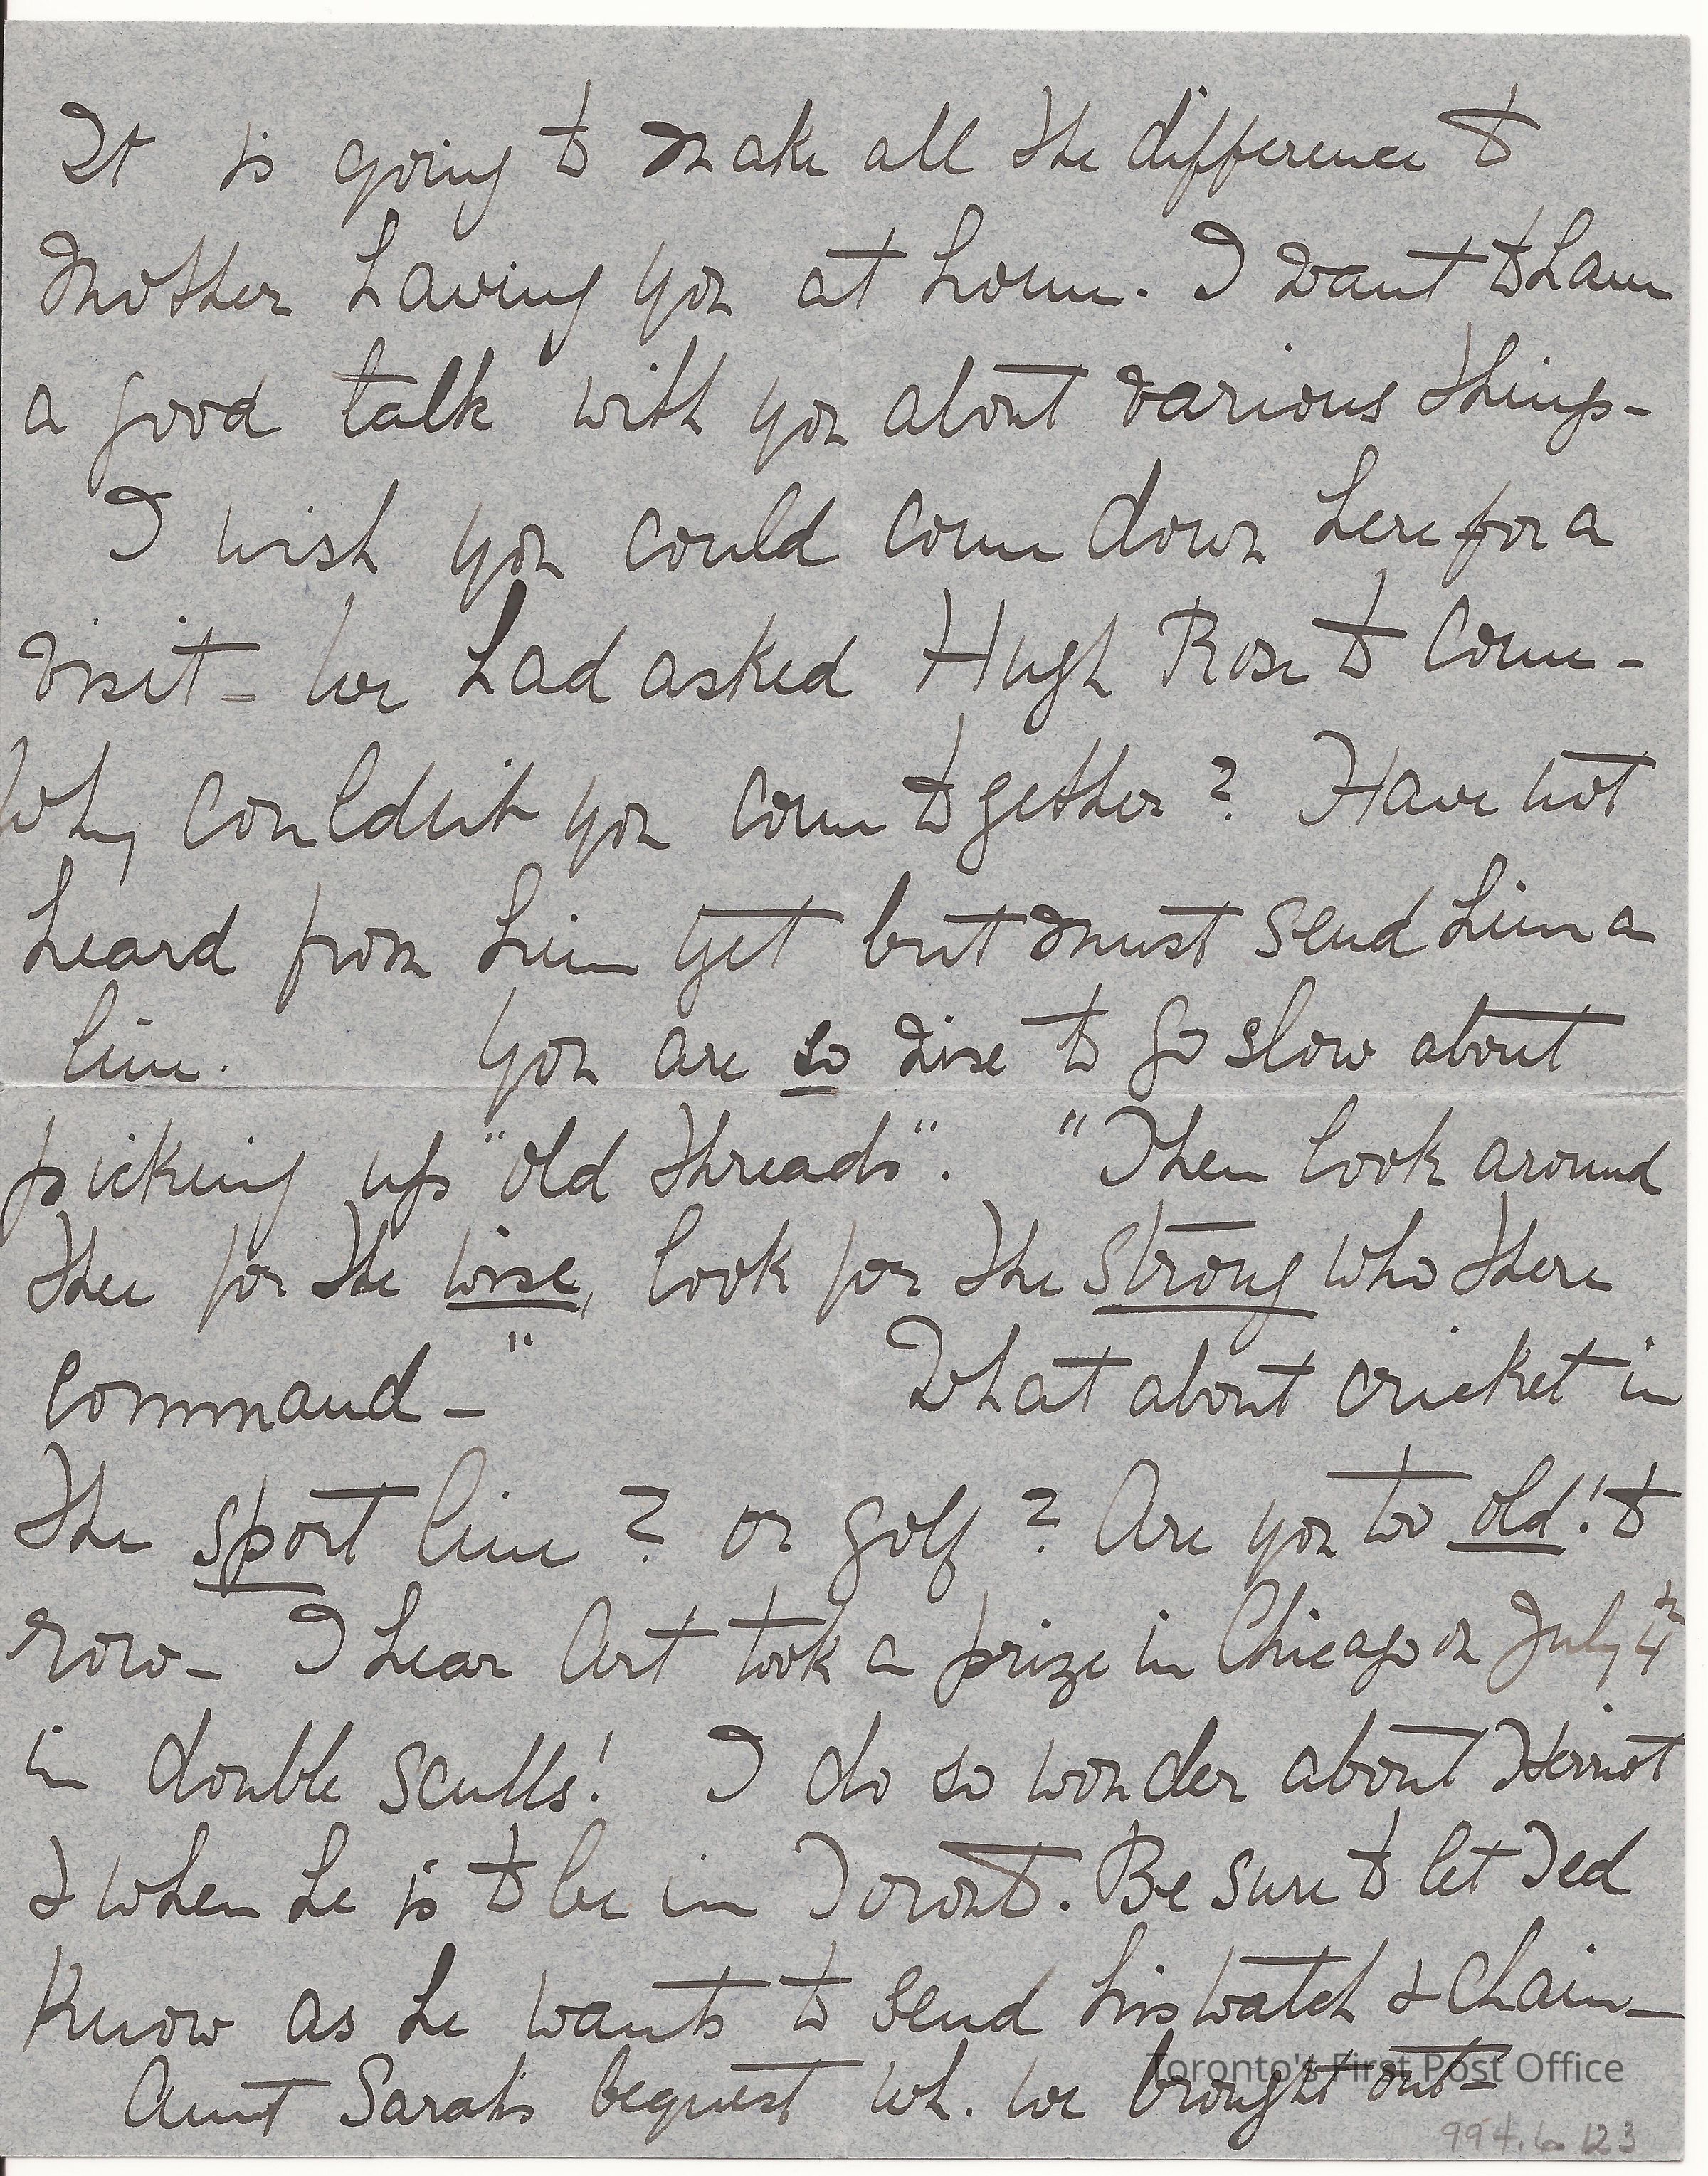 It is going to make all the difference to
Mother having you at home. I want to have
a good talk with you about various things -
I wish you could come down here for a
visit - We had asked Hugh Rose to come -
Why couldn't you come together? Have not
heard from him yet but must send him a
line. You are so wise to go slow about
picking up "old threads". "Then look around
thee for the wise, look for the strong who there
command - "
What about cricket in
the sport line? or golf? Are you too old! to
row - I hear Art took a prize in Chicago on July 4th
in double sculls! I do so wonder about Herriot
& when he is to be in Toronto. Be sure to let Ted
know as he wants to send his watch & chain -
Aunt Sarah's bequest wh. we brought out -
Toronto's First Post Office
994.6.123